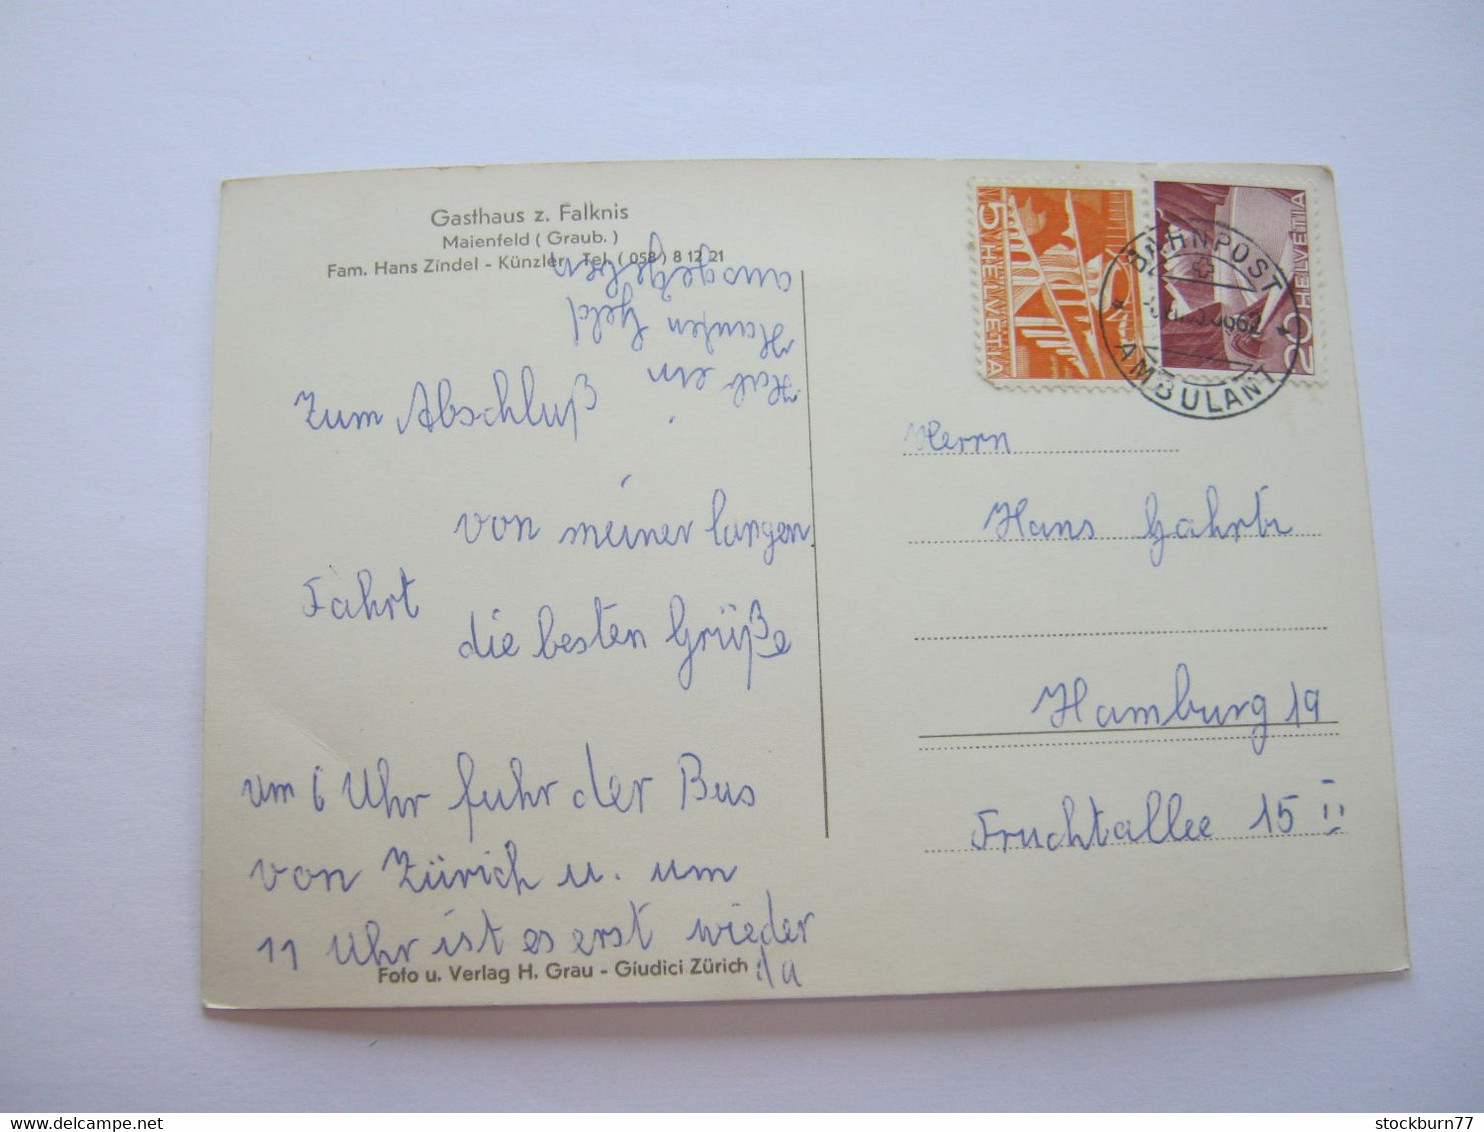 Gasthaus z. Falknis
Maienfeld ( Graub. )
Fam. Hans Zindel - Künzler Tel. ( 058 ) 8 12 21
Hab ein
Haufen Geld
ausgegeben
Zum Abschluß
von meiner langen
Fahrt
die besten Grüße
um 6 Uhr fuhr der Bus
von Zürich u. um
11 Uhr ist es erst wieder
da
Foto u. Verlag H. Grau - Giudici Zürich
5 HELVETIA
20 HELVETIA
BAHNPOST
AMBULANT
Herrn
Hans
Hamburg 19
Fruchtallee 15 II
stockburn77